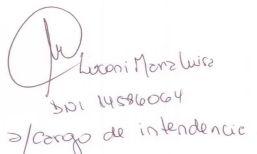 Luconi Maria Luisa
DNI 14586064
a/cargo de intendencia